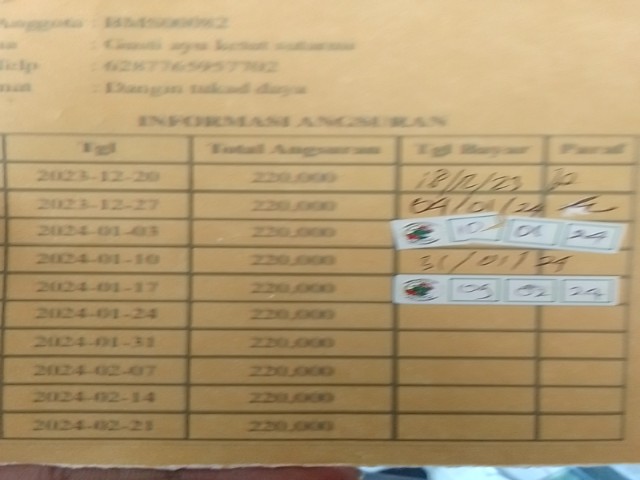 Anggota : BMS00082
: Gusti ayu ketut sutarmi
Telp : 6287765957702
mat : Dangin tukad daya
INFORMASI ANGSURAN
Tgl Total Angsuran Tgl Bayar Paraf
2023-12-20 220,000 18/12/23
2023-12-27 220,000 04/01/24
2024-01-03 220,000 10 01 24
2024-01-10 220,000 31/01/24
2024-01-17 220,000 05 02 24
2024-01-24 220,000
2024-01-31 220,000
2024-02-07 220,000
2024-02-14 220,000
2024-02-21 220,000